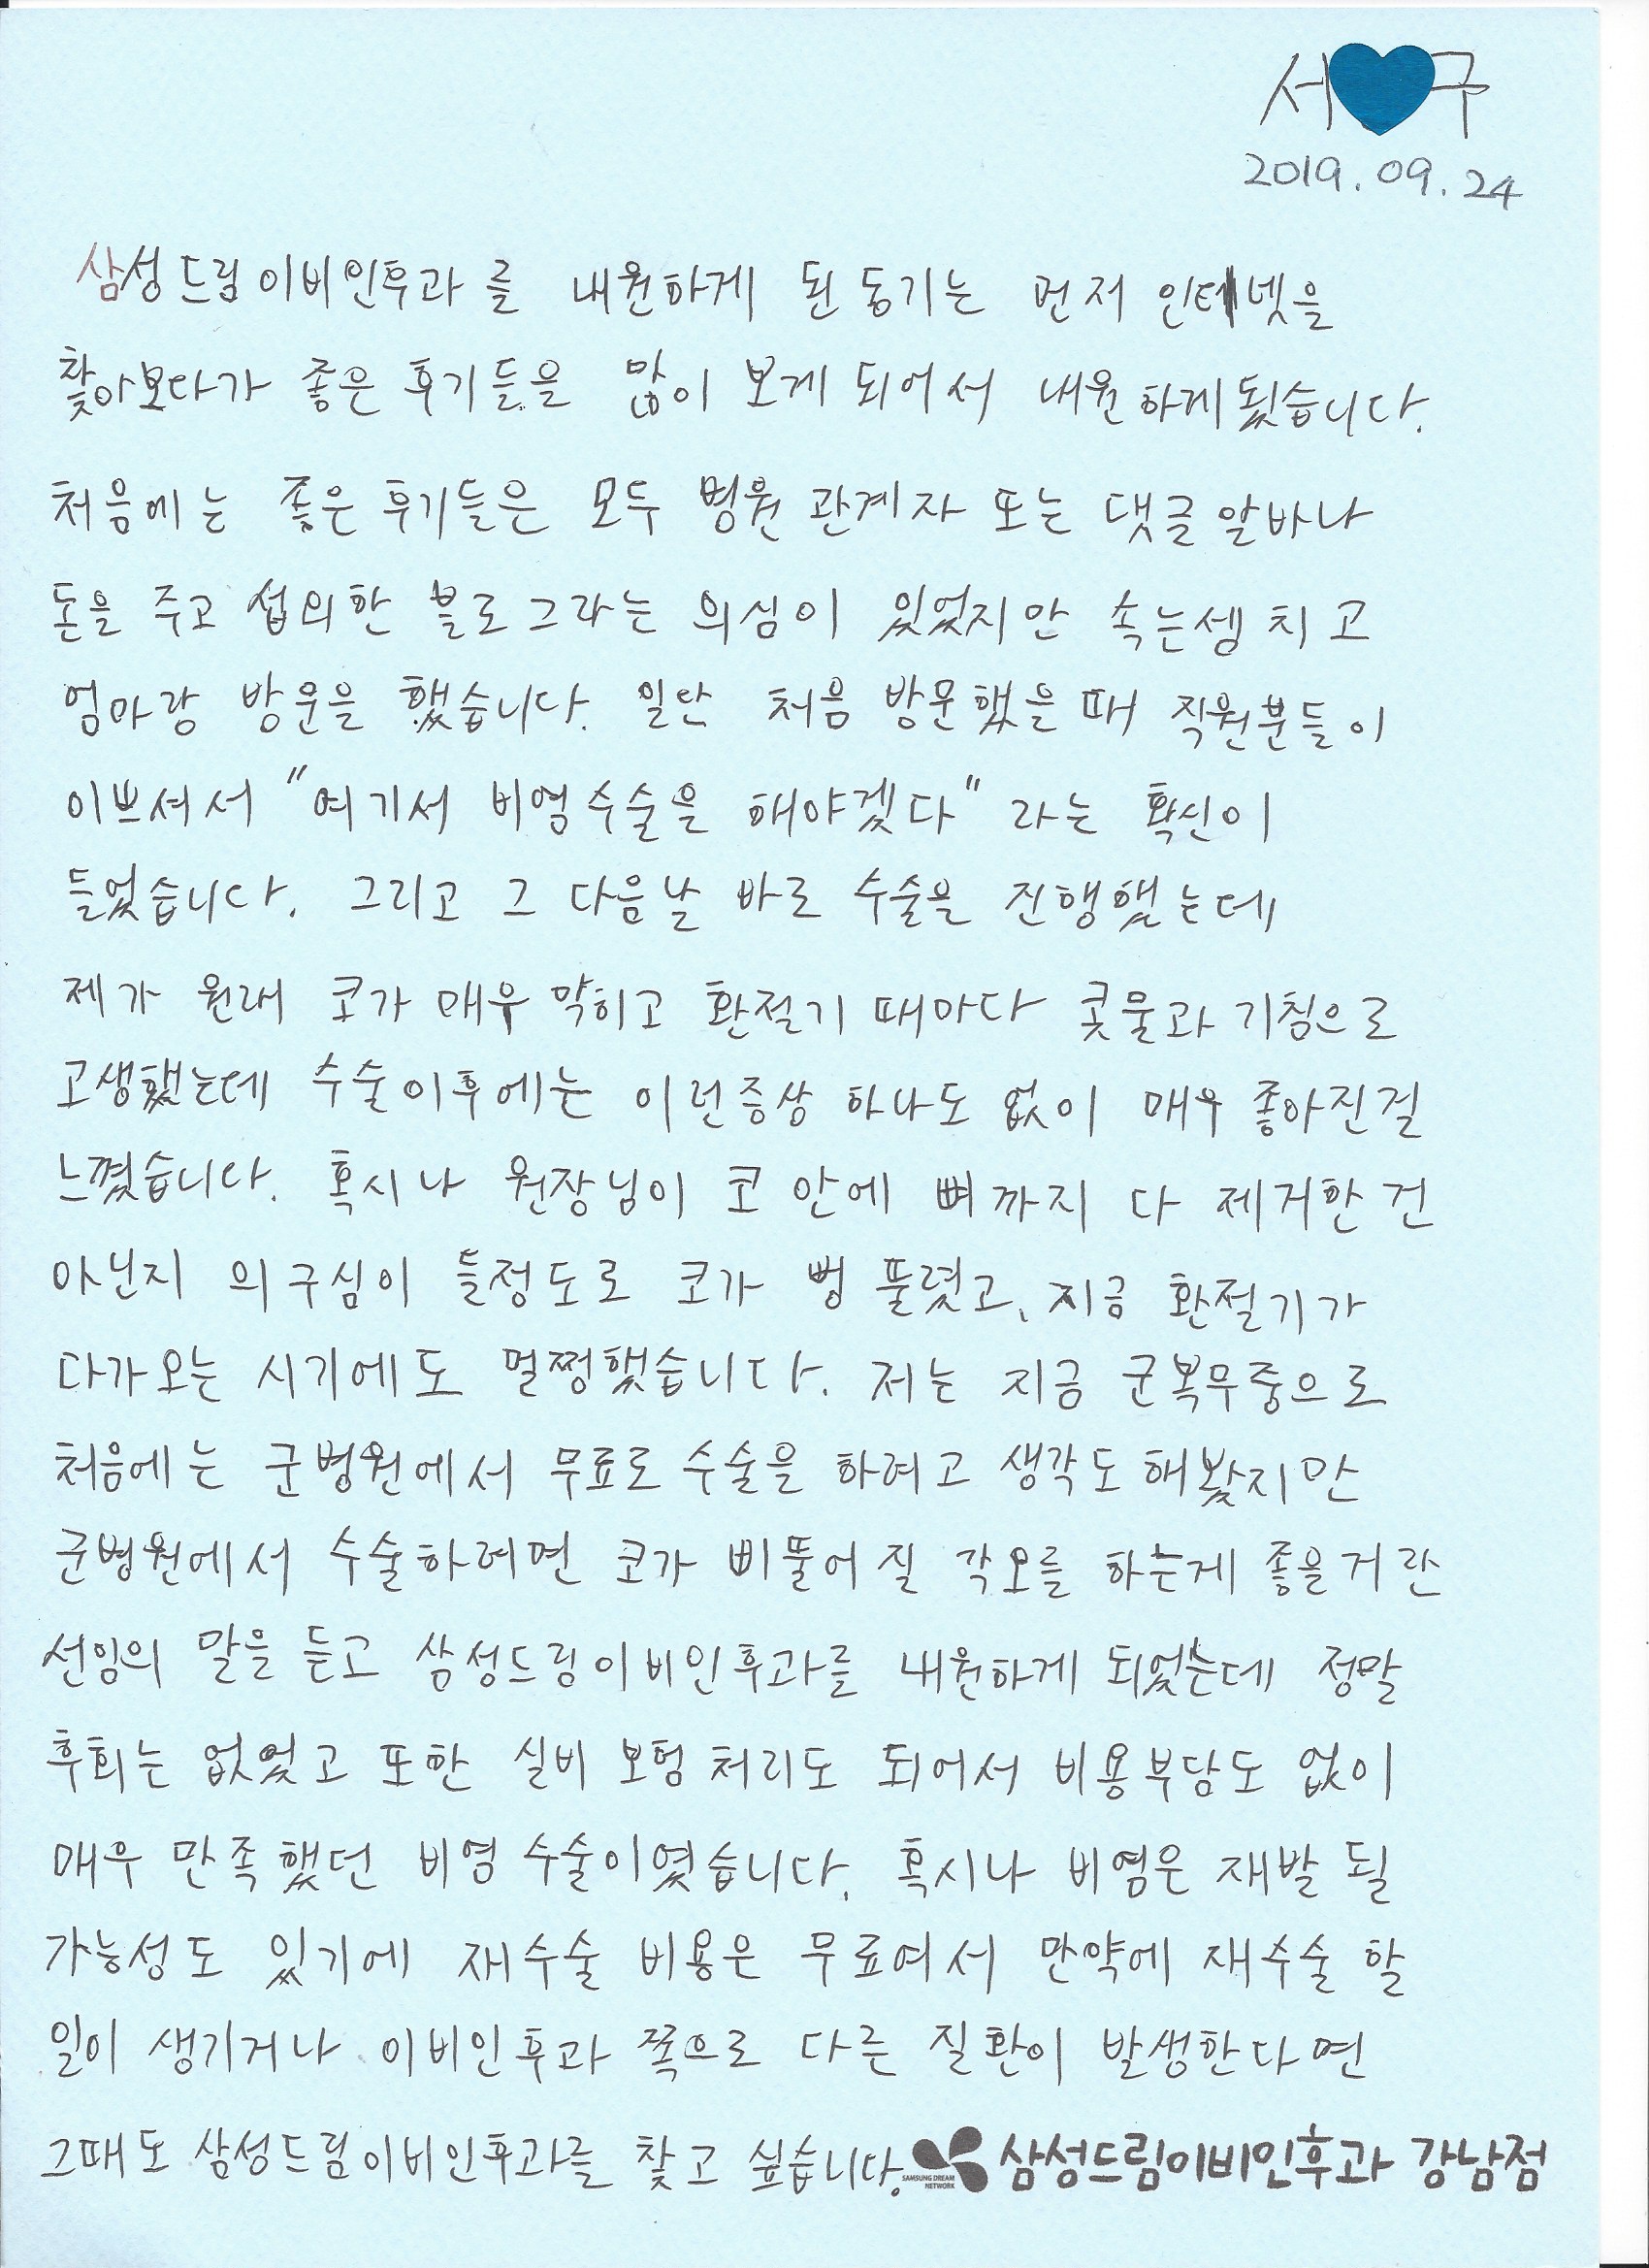 서 구
2019. 09. 24
삼성드림이비인후과를 내원하게 된 동기는 먼저 인테넷을
찾아보다가 좋은 후기들을 많이 보게 되어서 내원하게됬습니다.
처음에는 좋은 후기들은 모두 병원 관계자 또는 댓글알바나
돈을 주고 섭외한 블로그라는 의심이 있었지만 속는셈 치고
엄마랑 방문을 했습니다. 일단 처음 방문했을 때 직원분들이
이쁘셔서 "여기서 비염수술을 해야겠다" 라는 확신이
들었습니다. 그리고 그 다음날 바로 수술을 진행했는데
제가 원래 코가 매우 막히고 환절기 때마다 콧물과 기침으로
고생했는데 수술이후에는 이런증상 하나도 없이 매우 좋아진걸
느꼈습니다. 혹시나 원장님이 코 안에 뼈까지 다 제거한 건
아닌지 의구심이 들정도로 코가 뻥 뚤렸고, 지금 환절기가
다가오는 시기에도 멀쩡했습니다. 저는 지금 군복무중으로
처음에는 군병원에서 무료로 수술을 하려고 생각도 해봤지만
군병원에서 수술하려면 코가 삐뚤어질 각오를 하는게 좋을거란
선임의 말을 듣고 삼성드림이비인후과를 내원하게 되었는데 정말
후회는 없었고 또한 실비 보험 처리도 되어서 비용부담도 없이
매우 만족했던 비염 수술이였습니다. 혹시나 비염은 재발 될
가능성도 있기에 재수술 비용은 무료여서 만약에 재수술 할
일이 생기거나 이비인후과 쪽으로 다른 질환이 발생한다면
그때도 삼성드림이비인후과를 찾고 싶습니다.
SAMSUNG DREAM NETWORK 삼성드림이비인후과 강남점